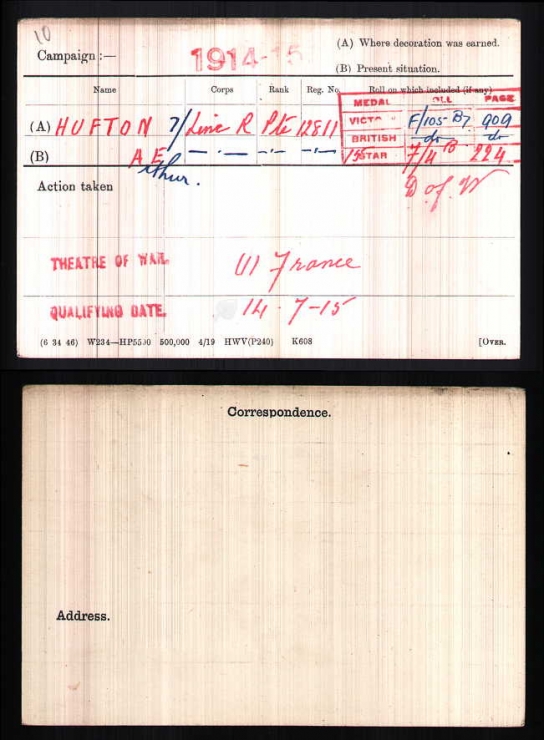 10
Campaign :— 1914-15
(A) Where decoration was earned.
(B) Present situation.
Name Corps Rank Reg. No. Roll on which included (if any)
MEDAL ROLL PAGE
(A) HUFTON 7/Linc R Pte 12811 VICTO F/105 B7 909
BRITISH do do
(B) A E " " " " 15 STAR F/4 B 224
Arthur.
Action taken D of W
THEATRE OF WAR. (1) France
QUALIFYING DATE. 14-7-15
(6 34 46) W234—HP5590 500,000 4/19 HWV(P240) K608 [OVER.
Correspondence.
Address.